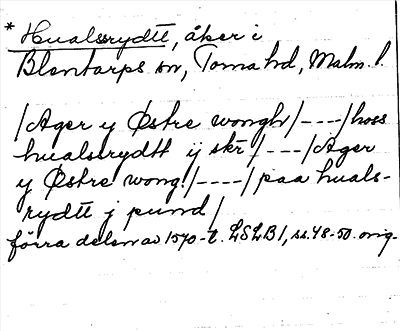 * Hualssrydtt, åker i
Blentarps sn, Torna hd, Malm. l.
/Ager y Østre wongh/---/hoss
hualssrydtt ij skr/---/Ager
y Østre wong/----/paa huals-
rydtt j pund/
förra delen av 1570-t. LSLB1, ss. 48-50. orig.